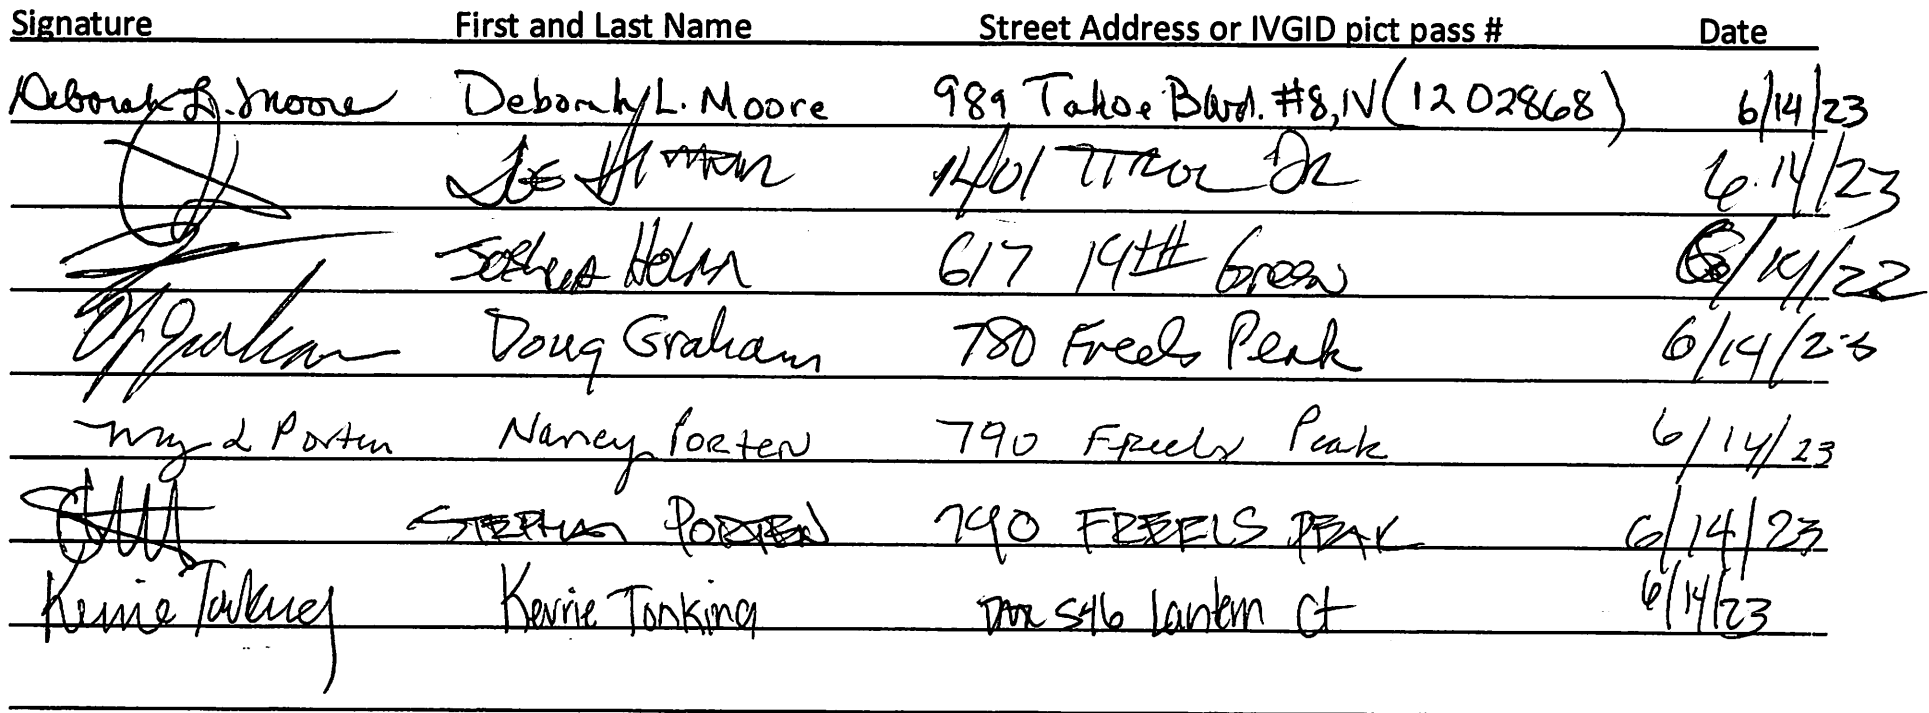 Signature First and Last Name Street Address or IVGID pict pass # Date
Deborah L. Moore Deborah L. Moore 989 Tahoe Blvd. #8, IV (1202868) 6/14/23
1401 Tirol Dr 6.14/23
Joshua Holm 617 14TH Green 6/14/22
Doug Graham 780 Freels Peak 6/14/23
Porter Nancy Porter 790 Freels Peak 6/14/23
STEPHEN PORTEN 790 FREELS PEAK 6/14/23
Kerrie Tonking Kerrie Tonking 546 Lantern Ct 6/14/23